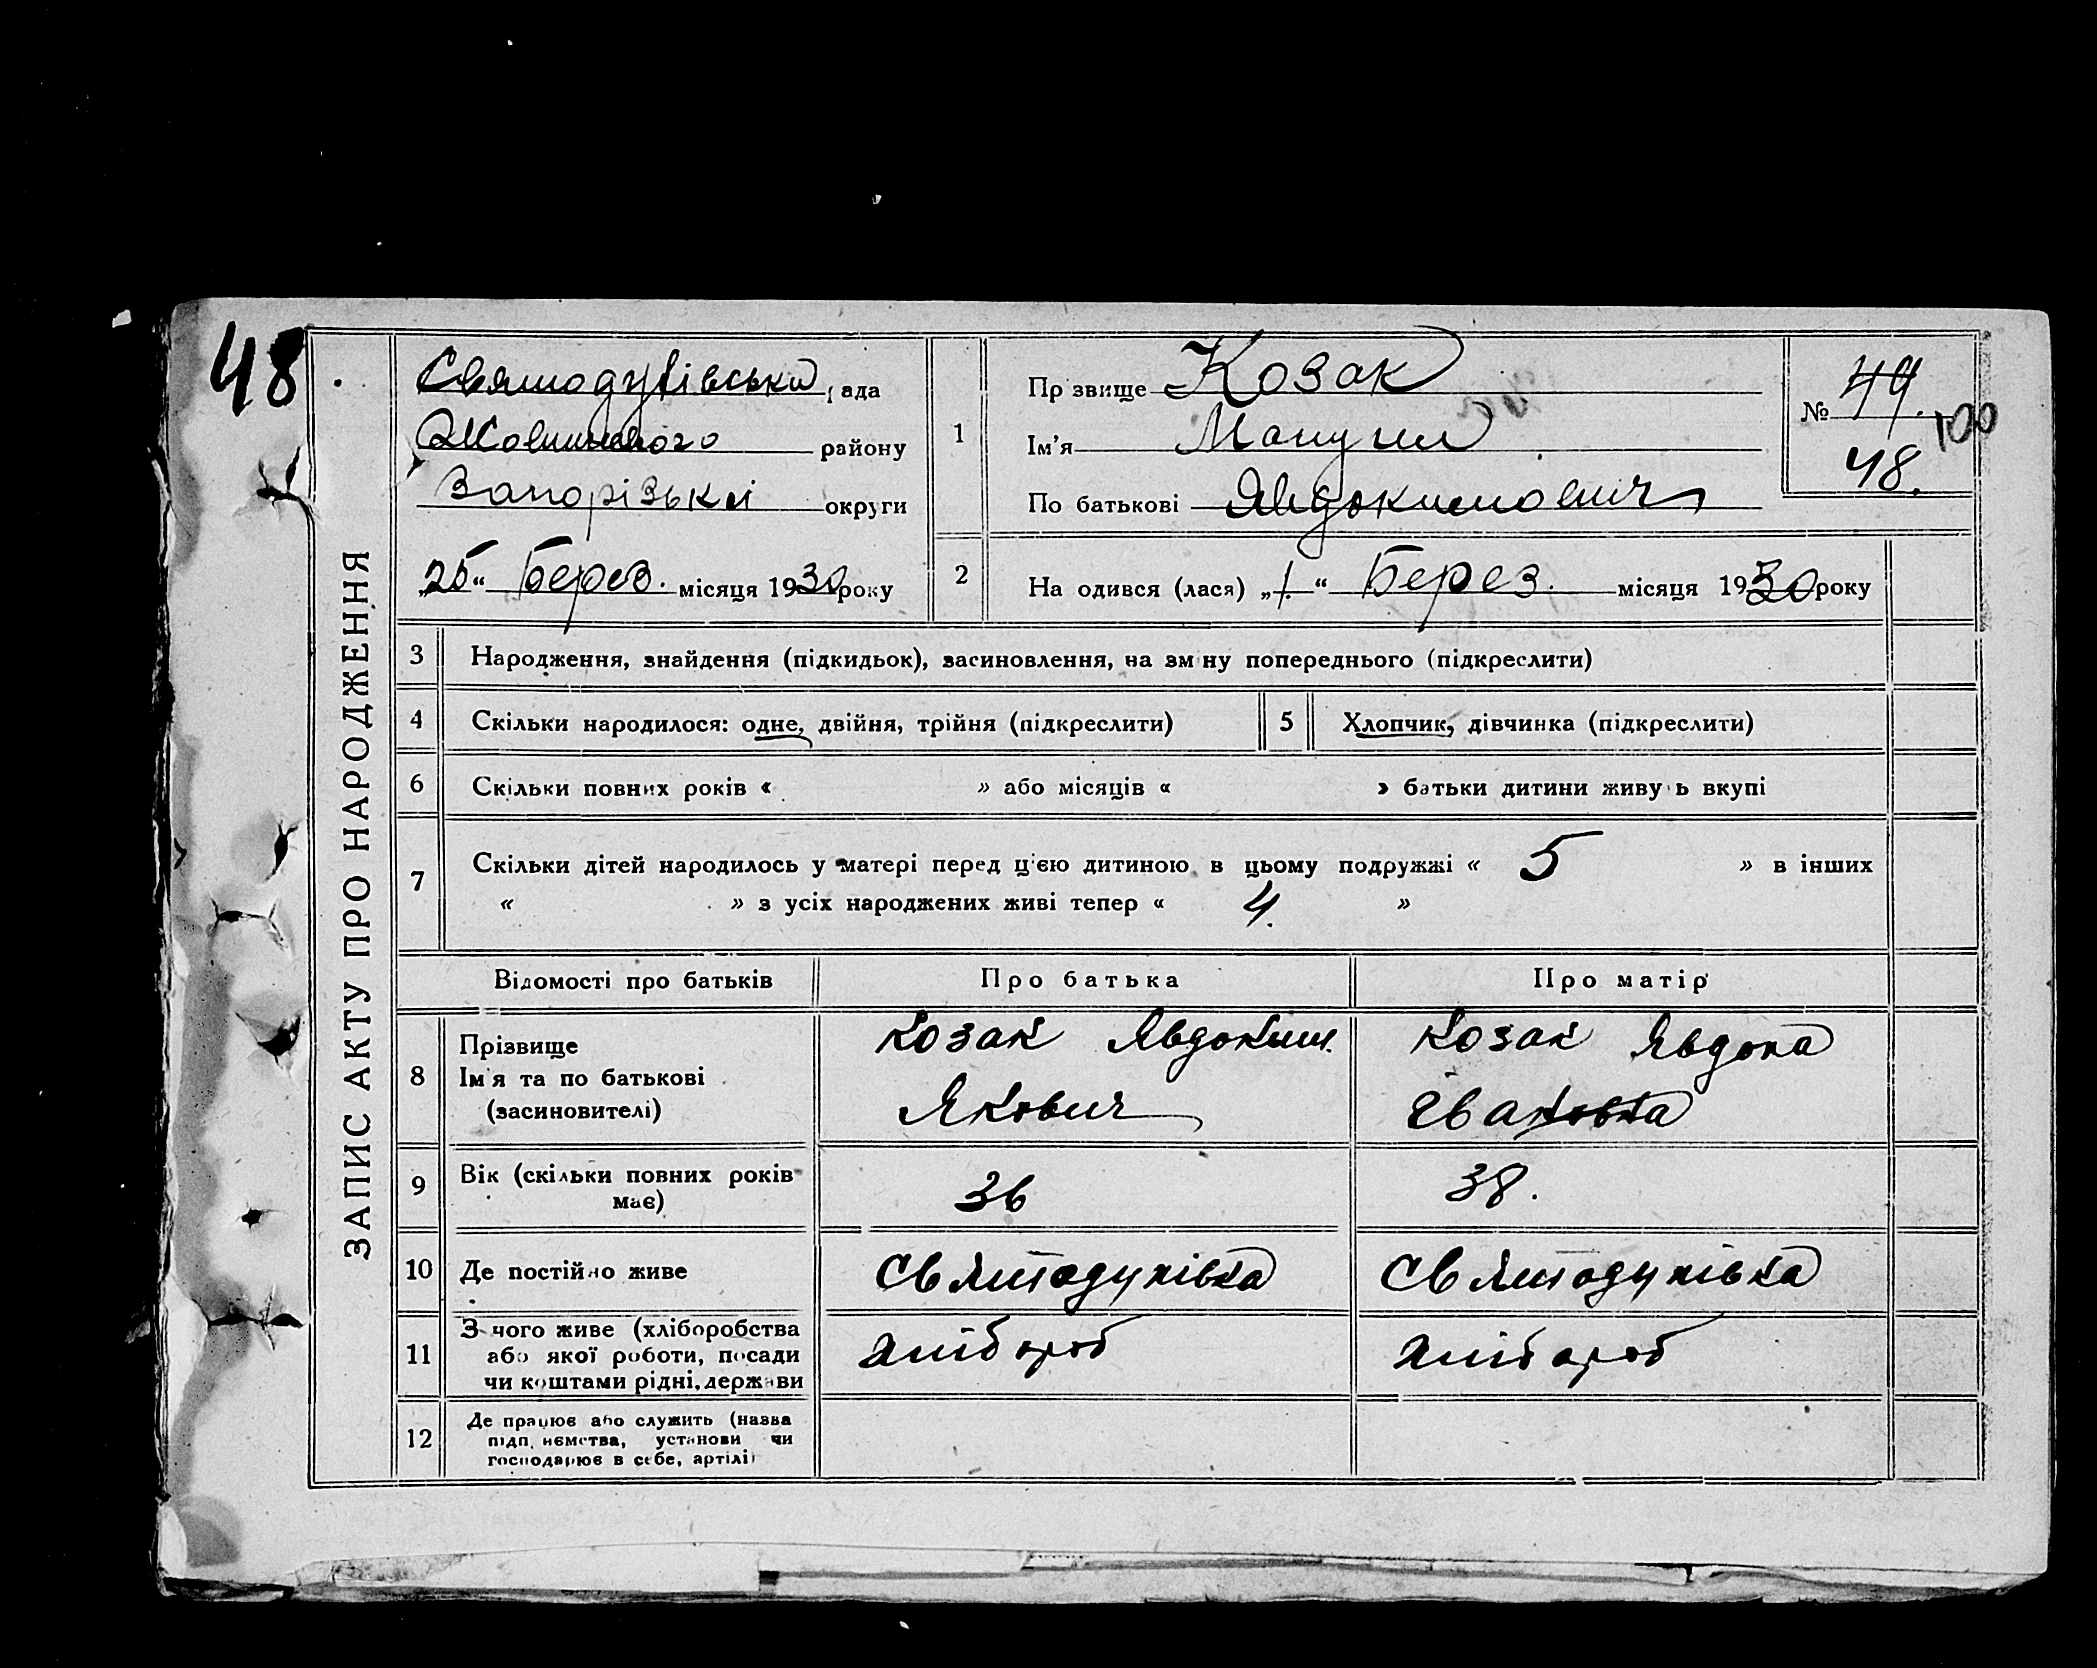 48
ЗАПИС АКТУ ПРО НАРОДЖЕННЯ
Святодухівська рада
району
Запорізької округи
„25“ Берез. місяця 1930 року
1
Прізвище Козак
Ім'я Мануил
По батькові Явдокимович
№ 49.
100
48.
2 На одився (лася) „1.“ Берез. місяця 1930 року
3 Народження, знайдення (підкидьок), засиновлення, на зміну попереднього (підкреслити)
4 Скільки народилося: одне, двійня, трійня (підкреслити)
5 Хлопчик, дівчинка (підкреслити)
6 Скільки повних років « » або місяців « » батьки дитини живуть вкупі
7 Скільки дітей народилось у матері перед цією дитиною в цьому подружжі « 5 » в інших
« » з усіх народжених живі тепер « 4. »
Відомості про батьків Про батька Про матір
8 Прізвище
Ім'я та по батькові
(засиновителі)
Козак Явдоким.
Якович
Козак Явдоха
Івановна
9 Вік (скільки повних років
має)
36 38.
10 Де постійно живе Святодухівка Святодухівка
11 З чого живе (хліборобства
або якої роботи, посади
чи коштами рідні, держави
хлібороб хлібороб
12 Де працює або служить (назва
підприємства, установи чи
господарює в себе, артілі)